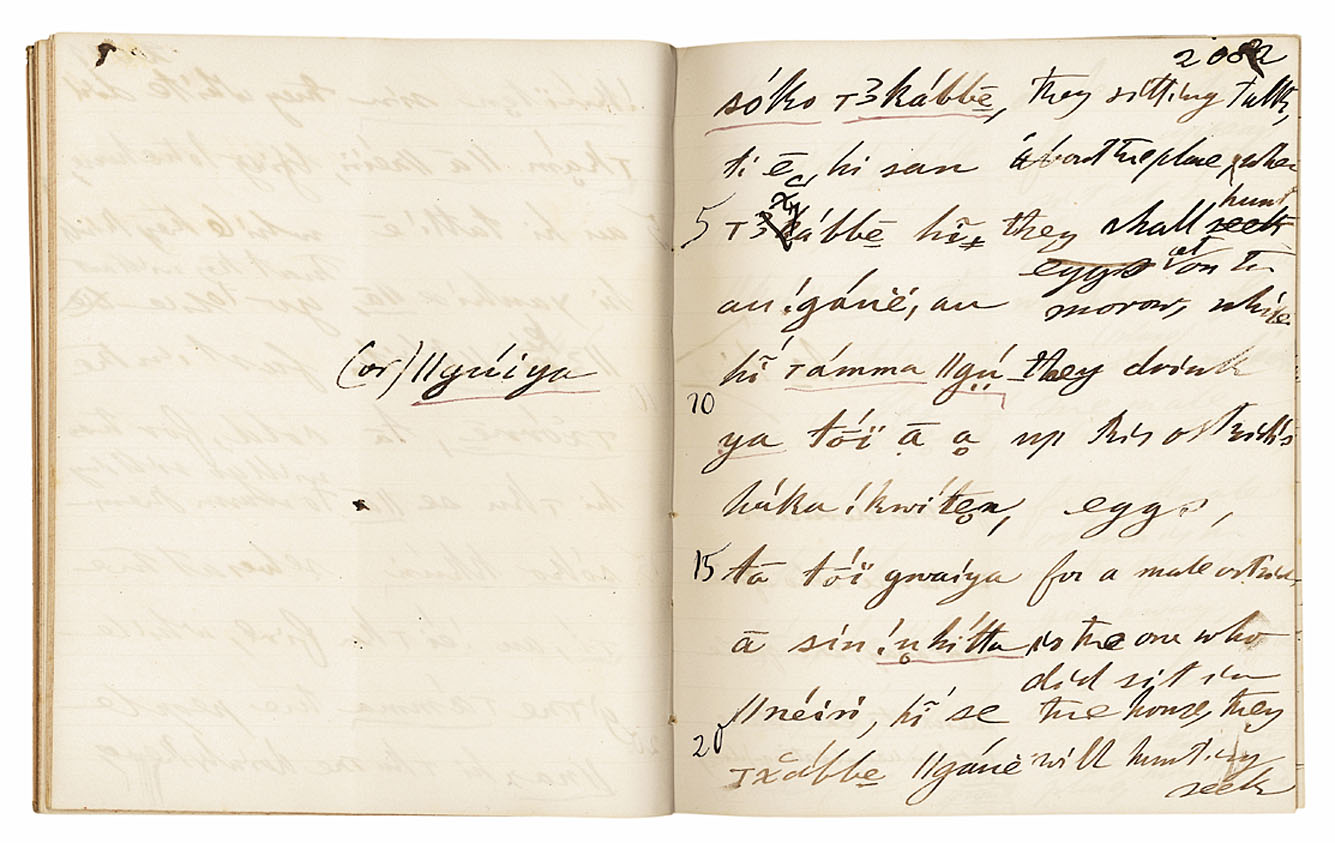 (or) ǁgúiya
2082
sóko т3kábbē, they sitting talk,
ti ē, hi san about the place, where
hunt
5 т kábbē hĩ they shall seek
eggs at on the
au !gáuë, au morrow, while
hĩ támma ǁgú they drink
10
ya tóï ā a up this ostrich's
háka !kwíten, eggs,
15 tā tóï gwaiya for a male ostrich
ā sín !nhítta is the one who
did sit in
ǁnéiri, hĩ se the house, they
20 тχábbe ǁgáuë will hunting
seek